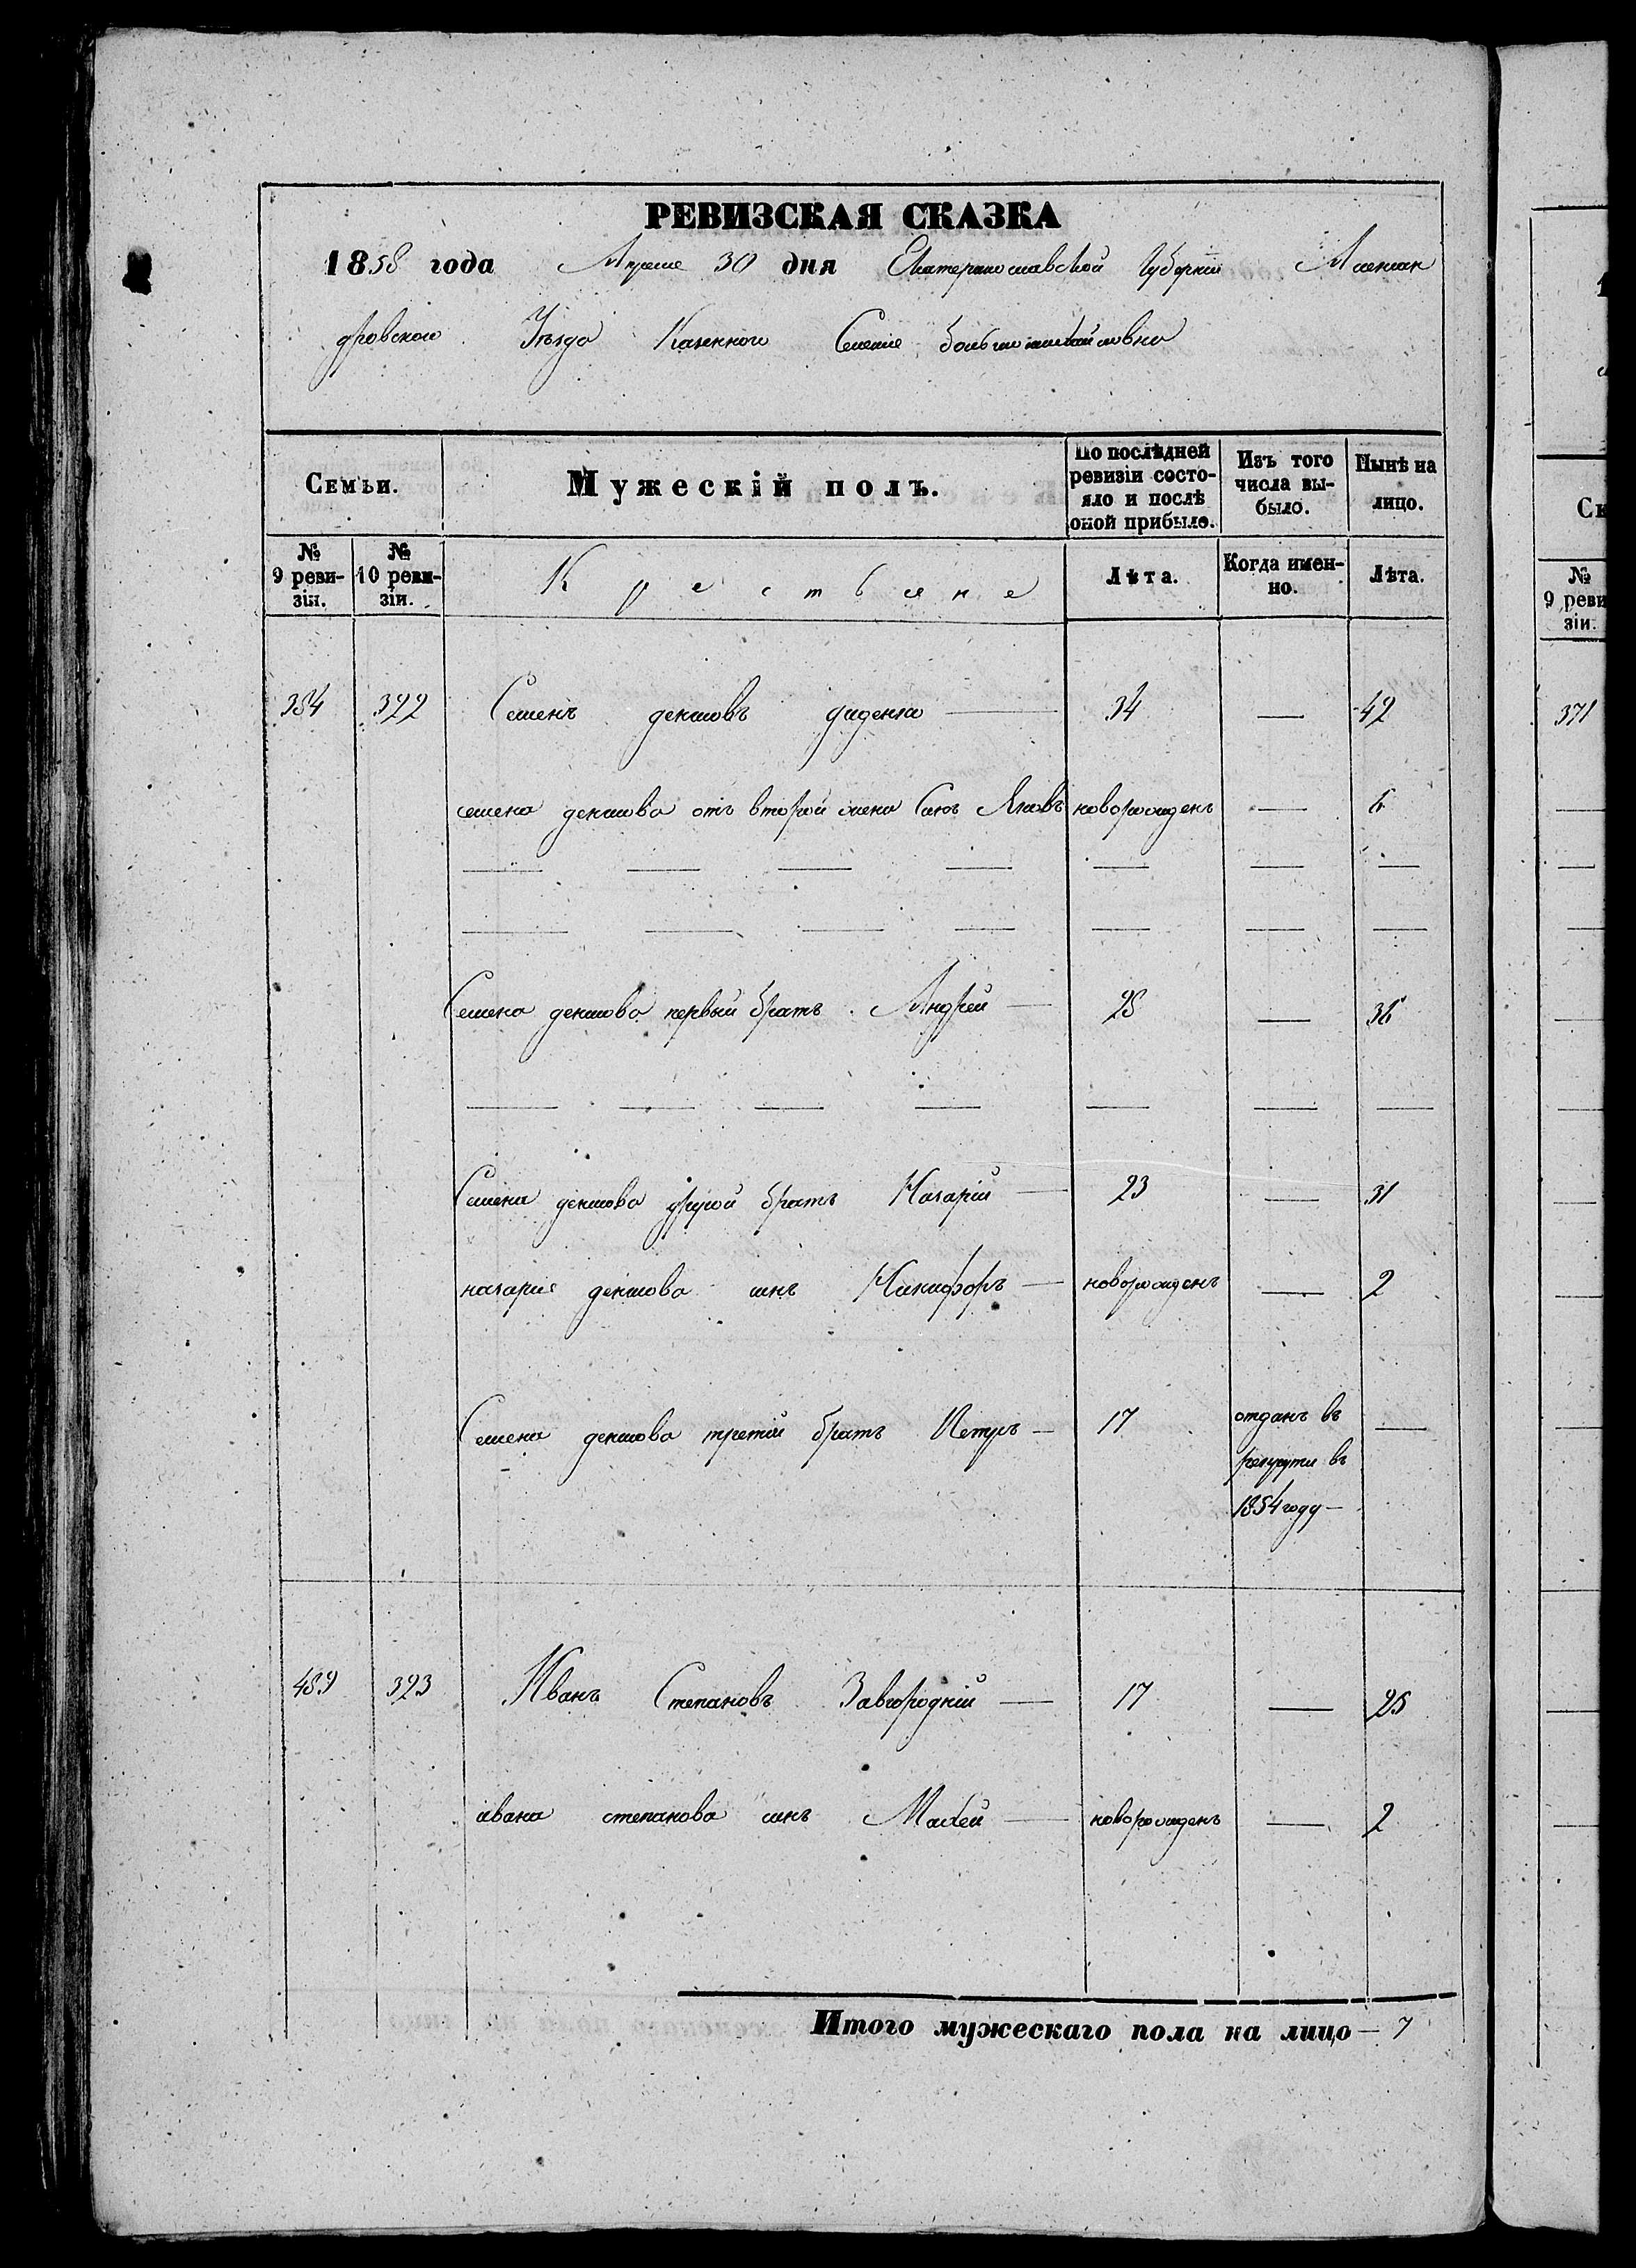 РЕВИЗСКАЯ СКАЗКА
1858 года Апреля 30 дня Екатеринославской Губернии Александровскаго
Уѣзда Казеннаго Селения Большомихайловки
Семьи. Мужескій полъ. По послѣдней ревизіи состояло и послѣ оной прибыло. Изъ того числа выбыло. Нынѣ на лицо.
№ 9 ревизіи. № 10 ревизіи. Крестьяне Лѣта. Когда именно. Лѣта.
384 322 Семенъ Диденко — 34 — 42
семена отъ второй жены Сынъ Яковъ новорожденъ — 6
— — — — — — —
— — — — — — —
Семена первый братъ Андрей — 28 — 36
— — — — — — —
Семена другой братъ Назарій — 23 — 31
назария сынъ Никифоръ — новорожденъ — 2
Семена третий братъ Петръ — 17 отданъ въ —
рекруты въ
1854 году —
489 323 Иванъ Степановъ Завгородній — 17 — 25
ивана степанова сынъ — новорожденъ — 2
Итого мужескаго пола на лицо — 7
Се
№ 9 ревизіи.
371